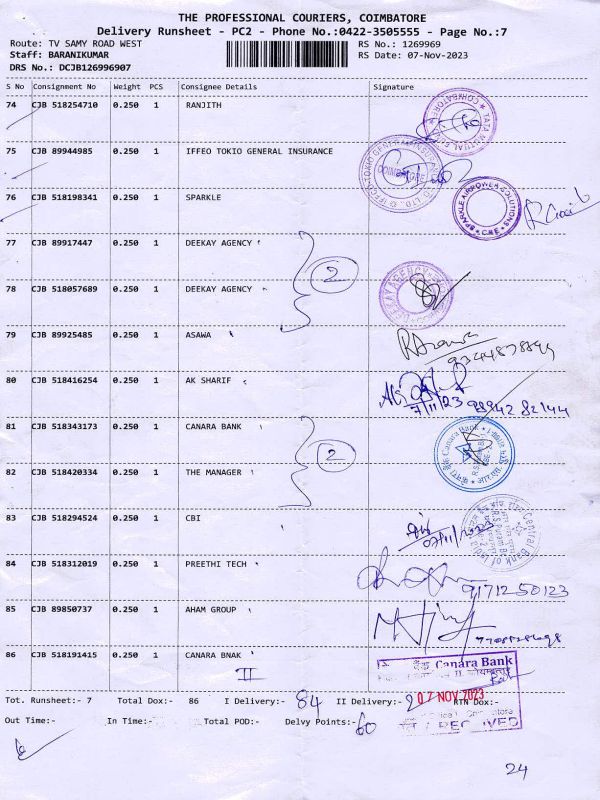 THE PROFESSIONAL COURIERS, COIMBATORE
Delivery Runsheet - PC2 - Phone No.:0422-3505555 - Page No.:7
Route: TV SAMY ROAD WEST RS No.: 1269969
Staff: BARANIKUMAR RS Date: 07-Nov-2023
DRS No.: DCJB126996907
S No Consignment No Weight PCS Consignee Details Signature
74 CJB 518254710 0.250 1 RANJITH
75 CJB 89944985 0.250 1 IFFEO TOKIO GENERAL INSURANCE
COIMBATORE
76 CJB 518198341 0.250 1 SPARKLE
SPARKLE AIRPOWER SOLUTIONS
CBE
77 CJB 89917447 0.250 1 DEEKAY AGENCY
2
78 CJB 518057689 0.250 1 DEEKAY AGENCY
DEEKAY AGENCY
79 CJB 89925485 0.250 1 ASAWA
80 CJB 518416254 0.250 1 AK SHARIF
7/11/23 98942 82144
81 CJB 518343173 0.250 1 CANARA BANK
Canara Bank
2
82 CJB 518420334 0.250 1 THE MANAGER
83 CJB 518294524 0.250 1 CBI
07/11/2023
Central Bank of India
84 CJB 518312019 0.250 1 PREETHI TECH
9171250123
85 CJB 89850737 0.250 1 AHAM GROUP
86 CJB 518191415 0.250 1 CANARA BNAK
II
Canara Bank
07 NOV 2023
RECEIVED
Tot. Runsheet:- 7 Total Dox:- 86 I Delivery:- 84 II Delivery:- 2 RTN Dox:-
Out Time:- In Time:- Total POD:- Delvy Points:- 60
24